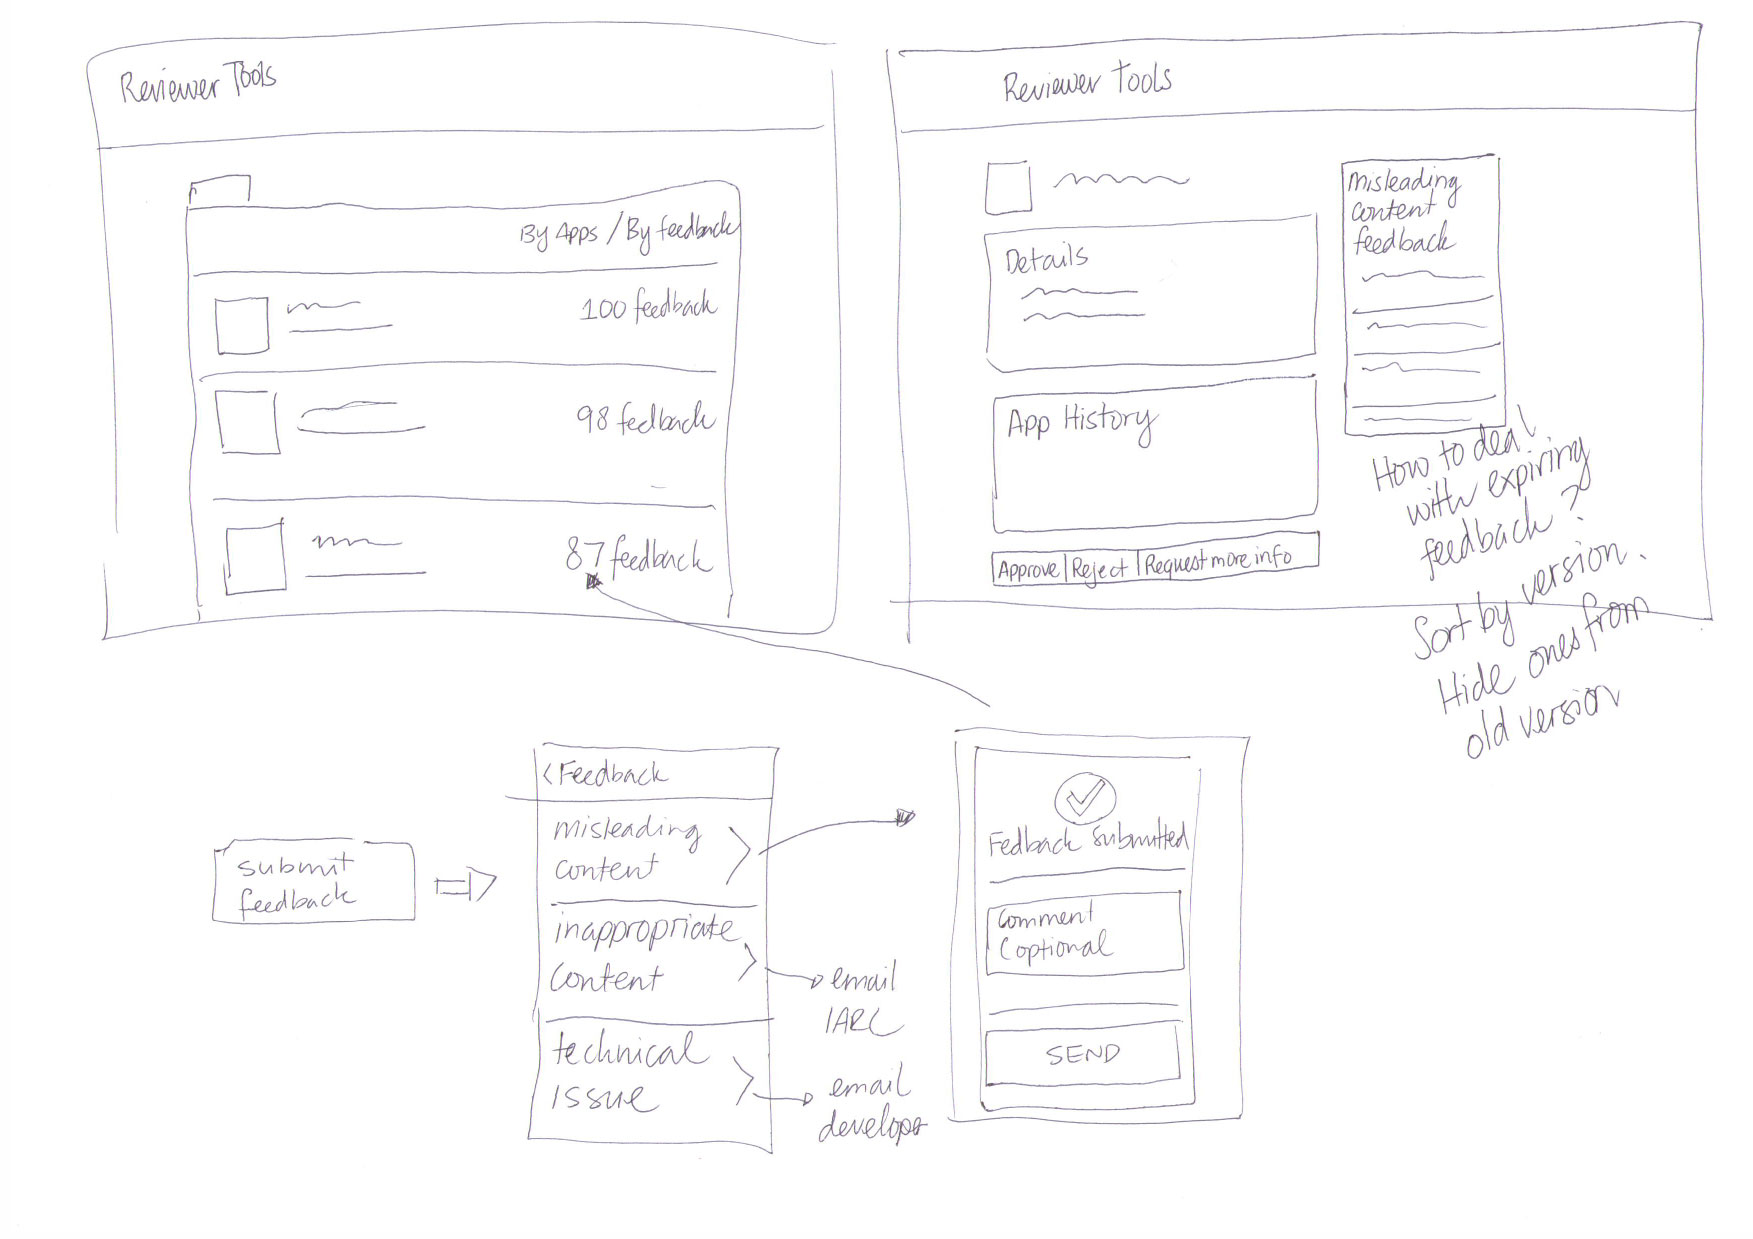 Reviewer Tools
By Apps / By feedback
100 feedback
98 feedback
87 feedback
Reviewer Tools
Details
App History
Approve | Reject | Request more info
misleading
content
feedback
How to deal
with expiring
feedback?
Sort by version.
Hide ones from
old version
submit
feedback
< Feedback
misleading
content
inappropriate
content
technical
issue
email
IARC
email
developer
Fedback Submitted
Comment
(optional
SEND